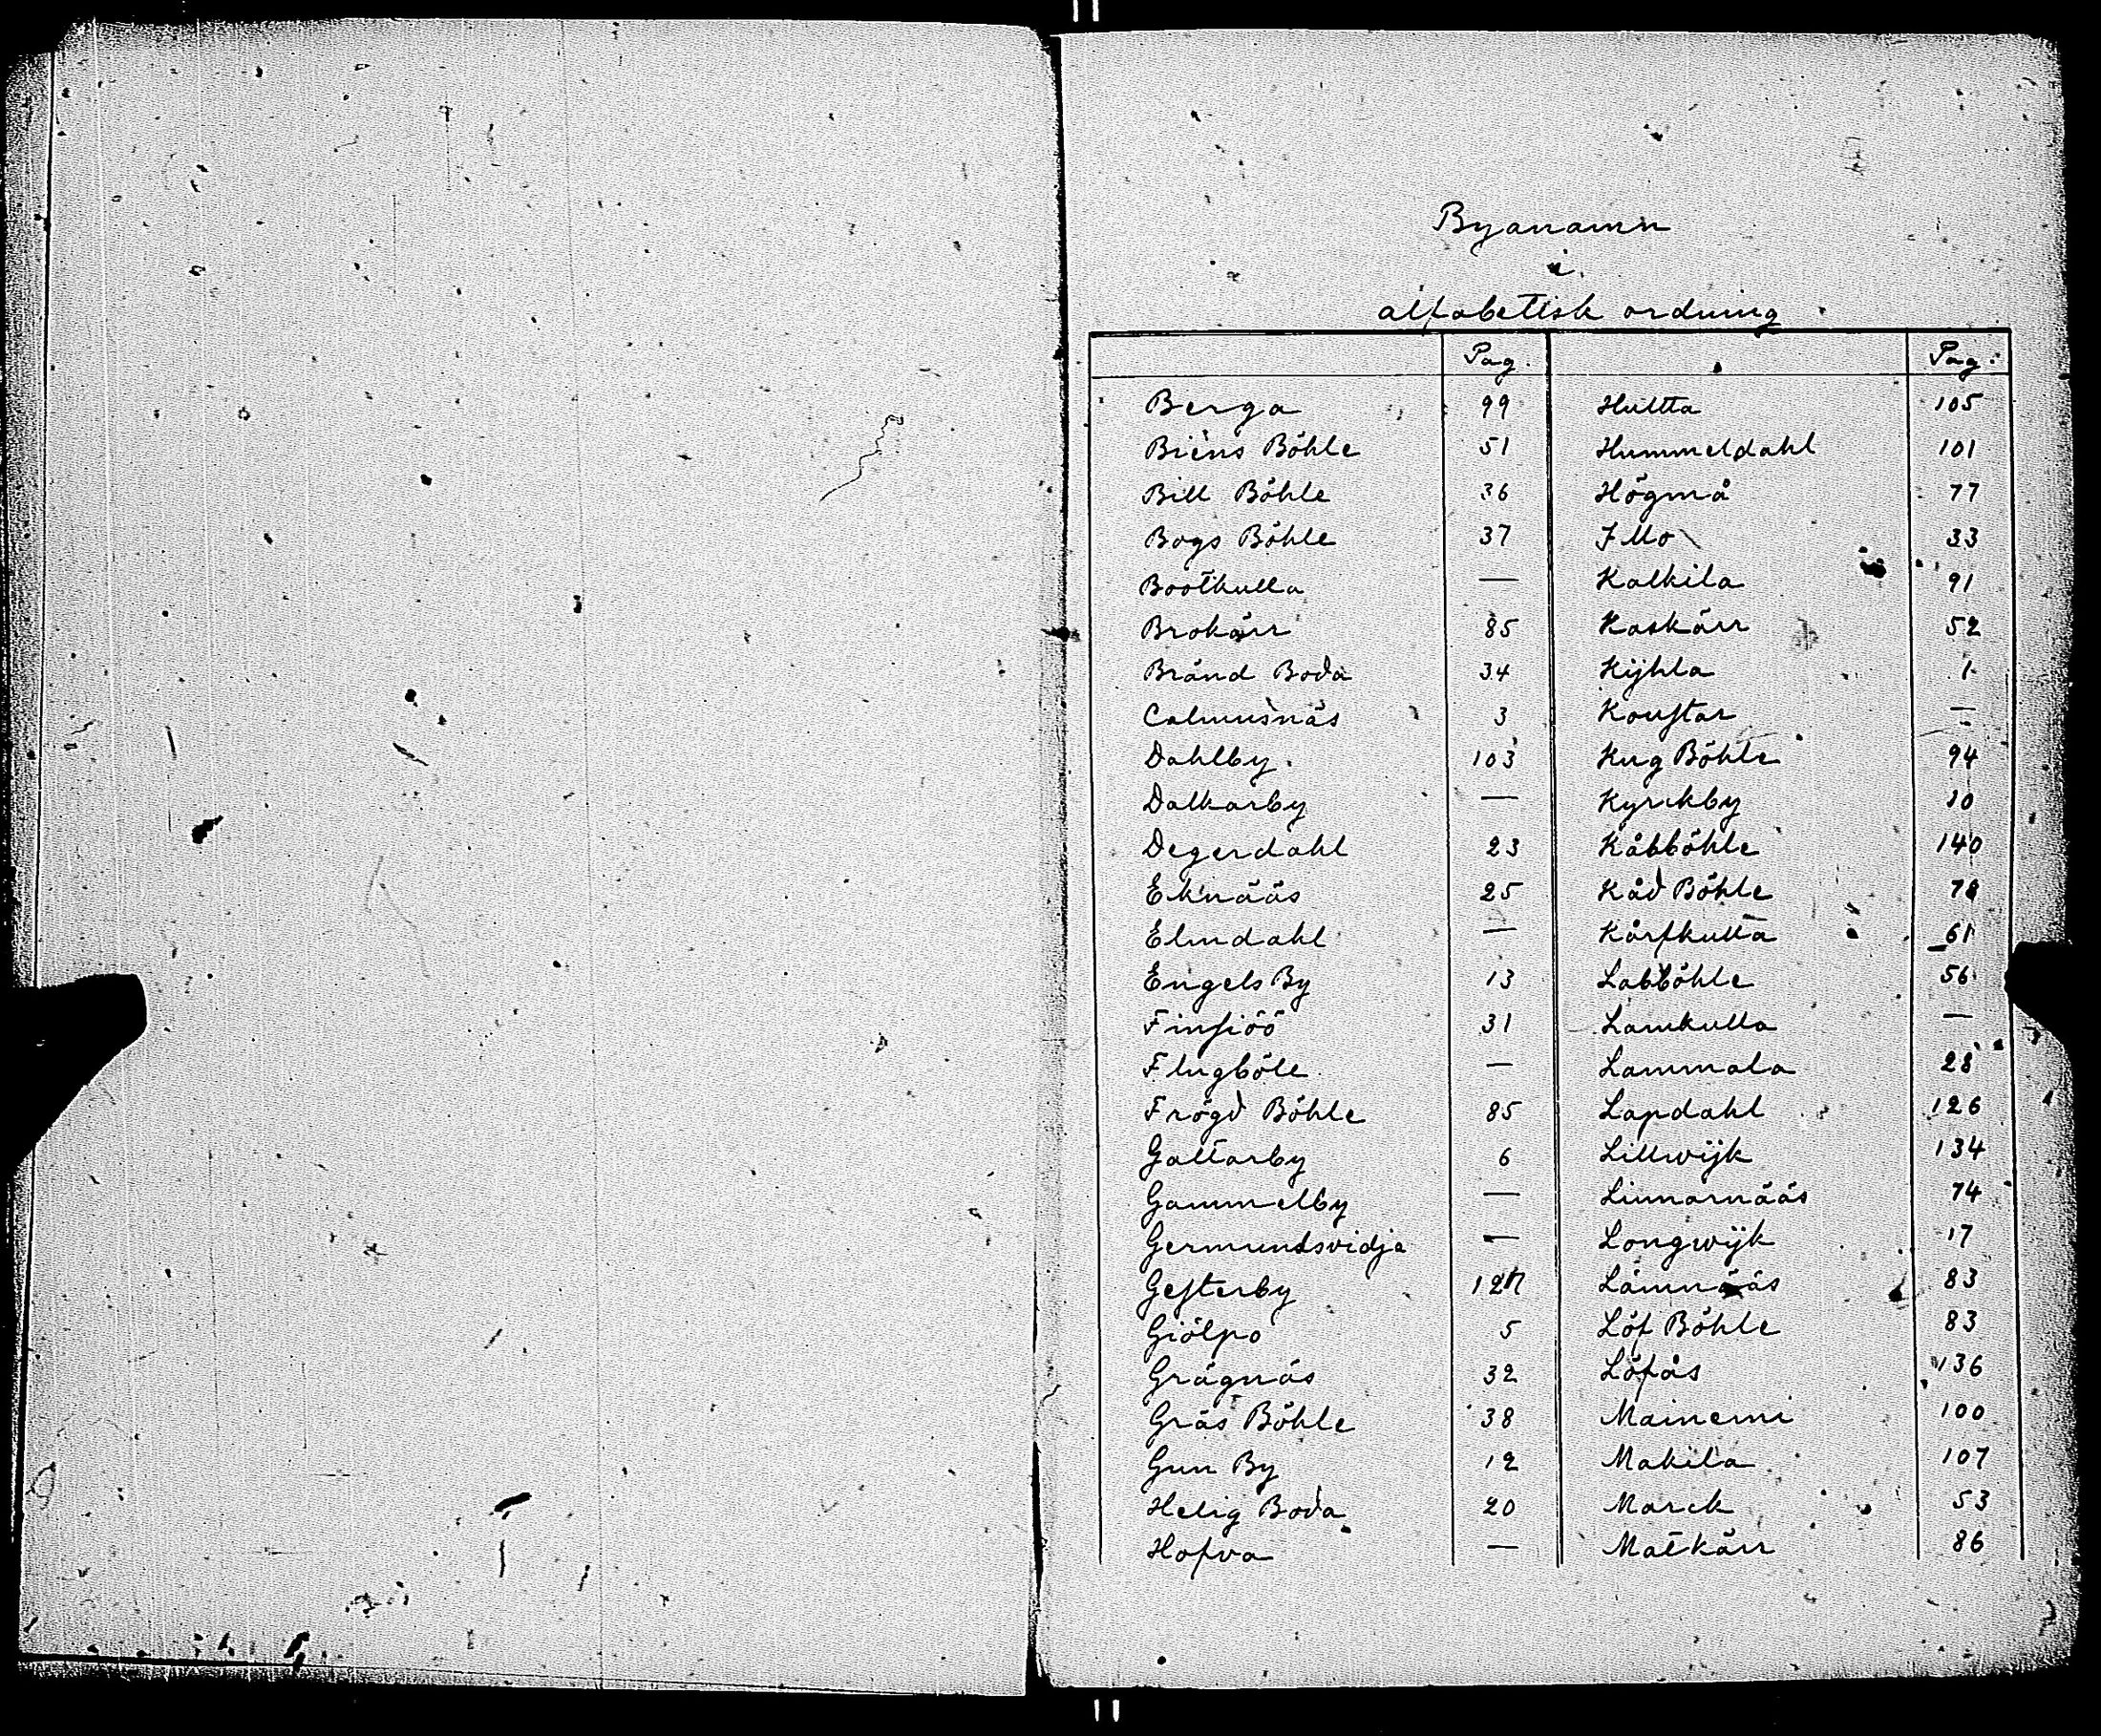 Byanamn
i
alfabetisk ordning
Pag. Pag:
Berga 99 Hultta 105
Biens Böhle 51 Hummeldahl 101
Bill Böhle 36 Högmå 77
Bogs Böhle 37 Illo 33
Bootkulla — Kalkila 91
Brokärr 85 Kaskärr 52
Bränd Boda 34 Kijhla 1
Calmusnäs 3 Kouſtar —
Dahlby. 103 Kug Böhle 94
Dalkarby — Kyrckby 10
Degerdahl 23 Kåbböhle 140
Eknääs 25 Kåd Böhle 78
Elmdahl — Kårfkulla 61
Engels By 13 Labböhle 56
Finſiöö 31 Lamkulla —
Flugböle — Lammala 28
Frögd Böhle 85 Lapdahl 126
Gattarby 6 Lillwijk 134
Gammelby — Linnarnääs 74
Germundsvidja — Longwijk 17
Geſterby Lämnääs 83
Giölpo 5 Löf Böhle 83
Grägnäs 32 Löfås 136
Gräs Böhle 38 Mainemi 100
Gun By 12 Makila 107
Helig Boda 20 Marck 53
Hofva — Matkärr 86